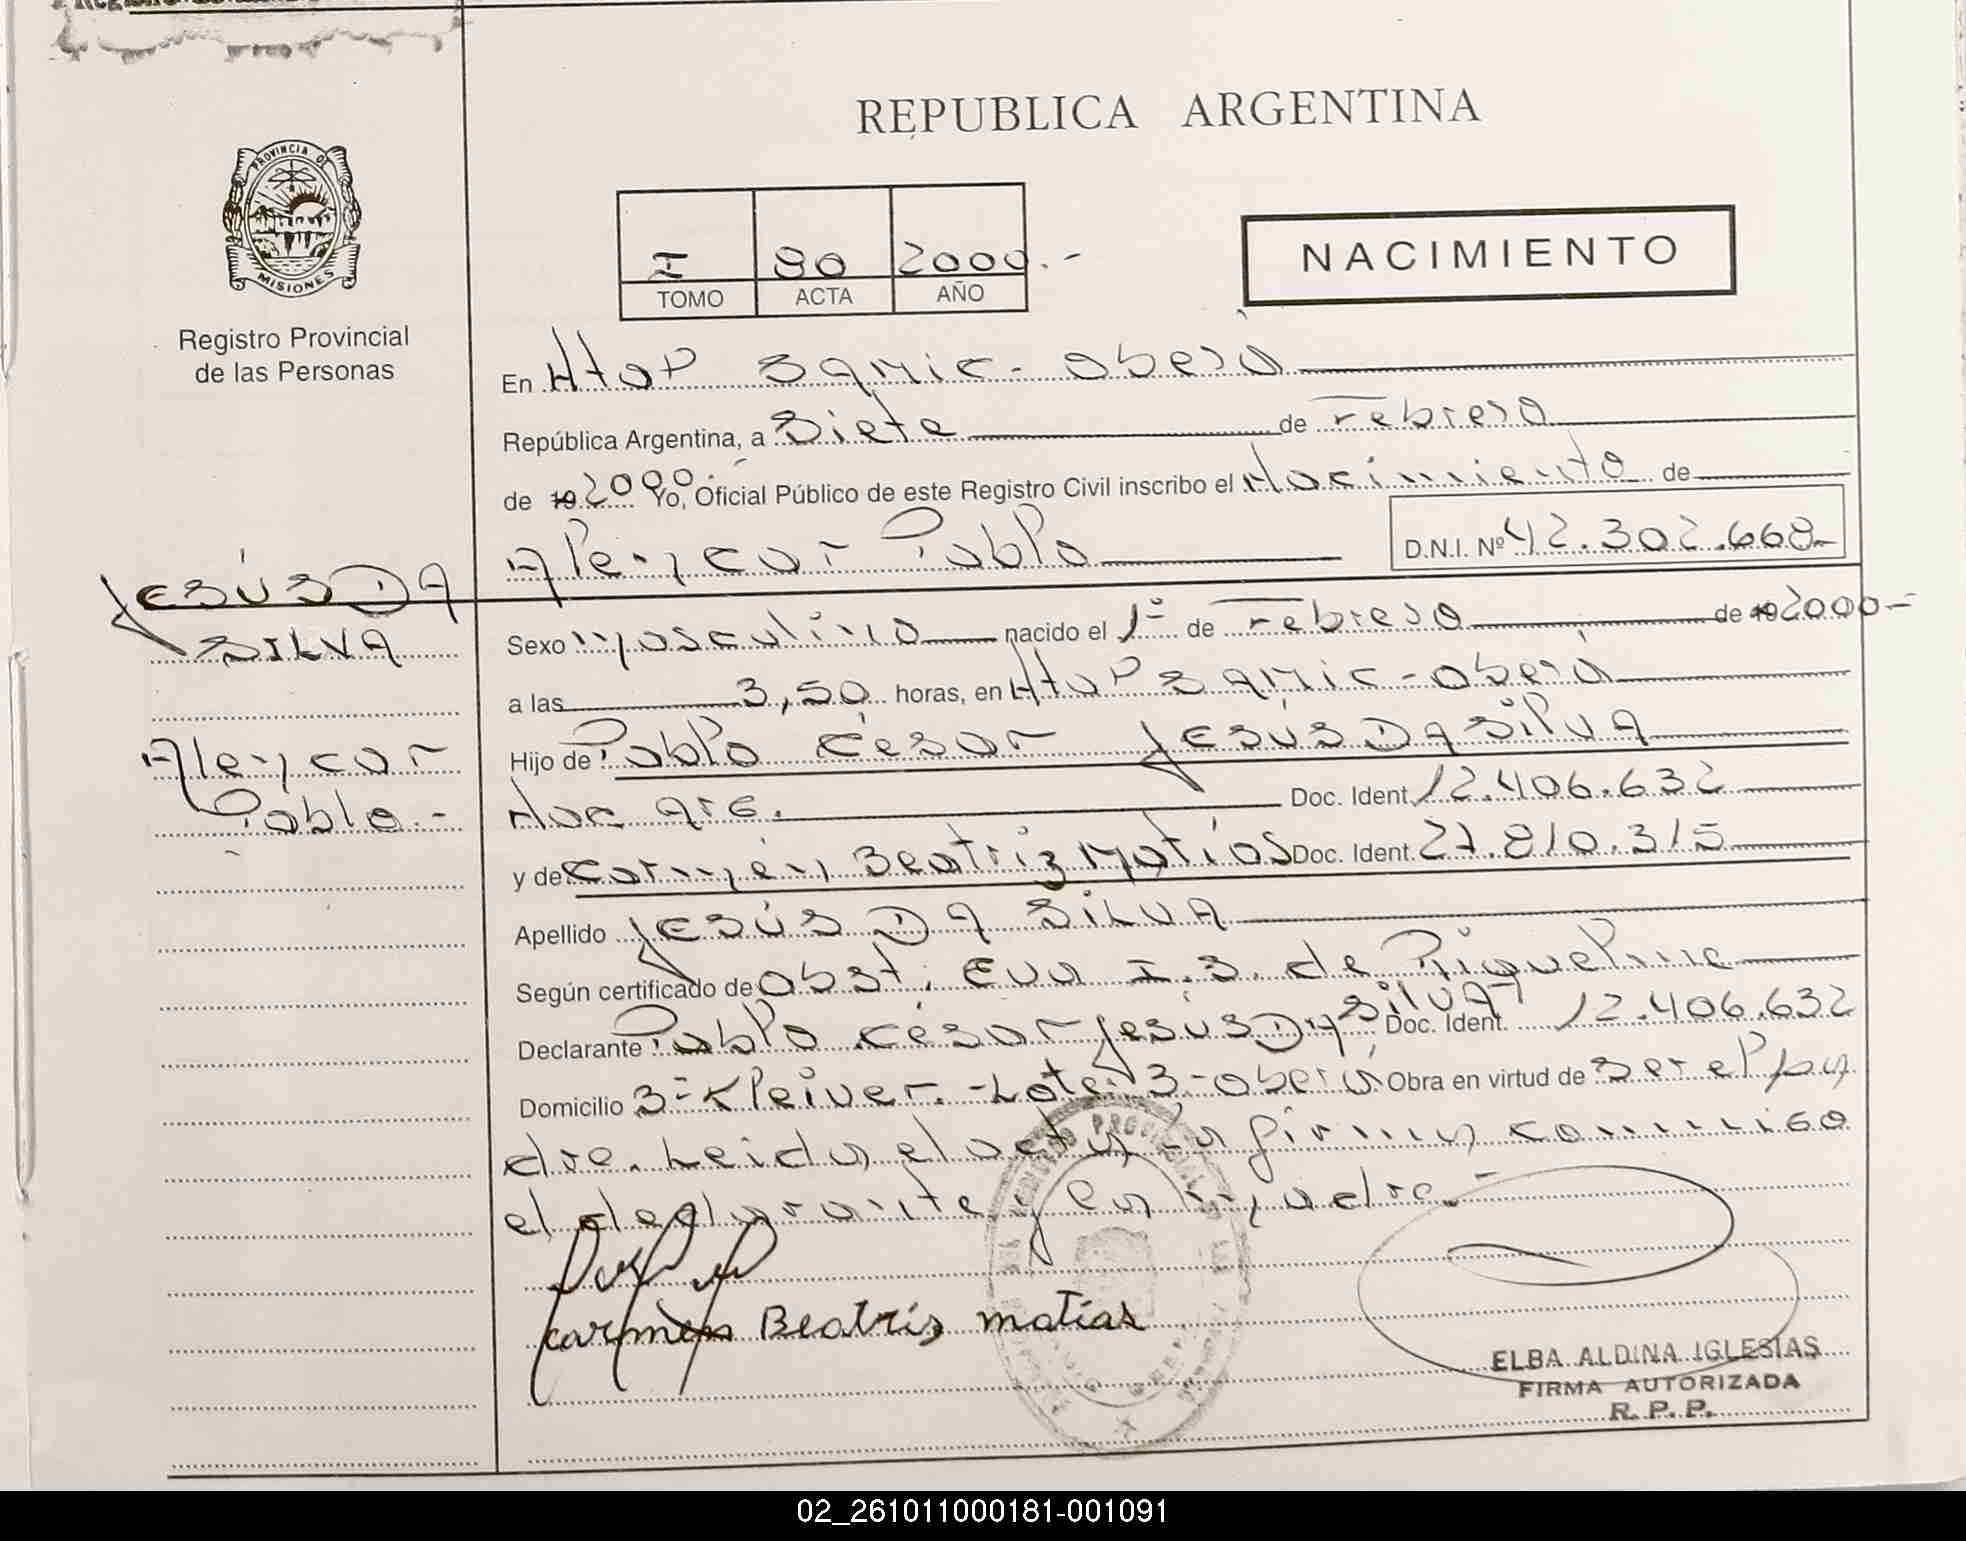 REPUBLICA ARGENTINA
PROVINCIA DE
MISIONES
Registro Provincial
de las Personas
I 90 2000.-
TOMO ACTA AÑO
NACIMIENTO
En Htal SAMIC - Oberá
República Argentina, a Siete de Febrero
de 19 2000.- Yo, Oficial Público de este Registro Civil inscribo el Nacimiento de
Alemcar Pablo D.N.I. Nº 42.302.668-
JESÚS DA
SILVA
Alemcar
Pablo.-
Sexo Masculino nacido el 1º de Febrero de 19 2000-
a las 3,50 horas, en Htal SAMIC - Oberá
Hijo de Pablo César JESÚS DA SILVA
Nac Arg. Doc. Ident. 12.406.632
y de Carmen Beatriz Matías Doc. Ident. 27.810.315
Apellido JESÚS DA SILVA
Según certificado de Obst. Eva I.S. de Riquelme
Declarante Pablo César Jesús DA SILVA Doc. Ident. 12.406.632
Domicilio 3- Kleiver.-Lote 3-Oberá Obra en virtud de ser el pa
dre. Leida el acta la firma conmigo
el declarante y la madre.-
Carmen Beatris matias
ELBA ALDINA IGLESIAS
FIRMA AUTORIZADA
R. P. P.
02_261011000181-001091